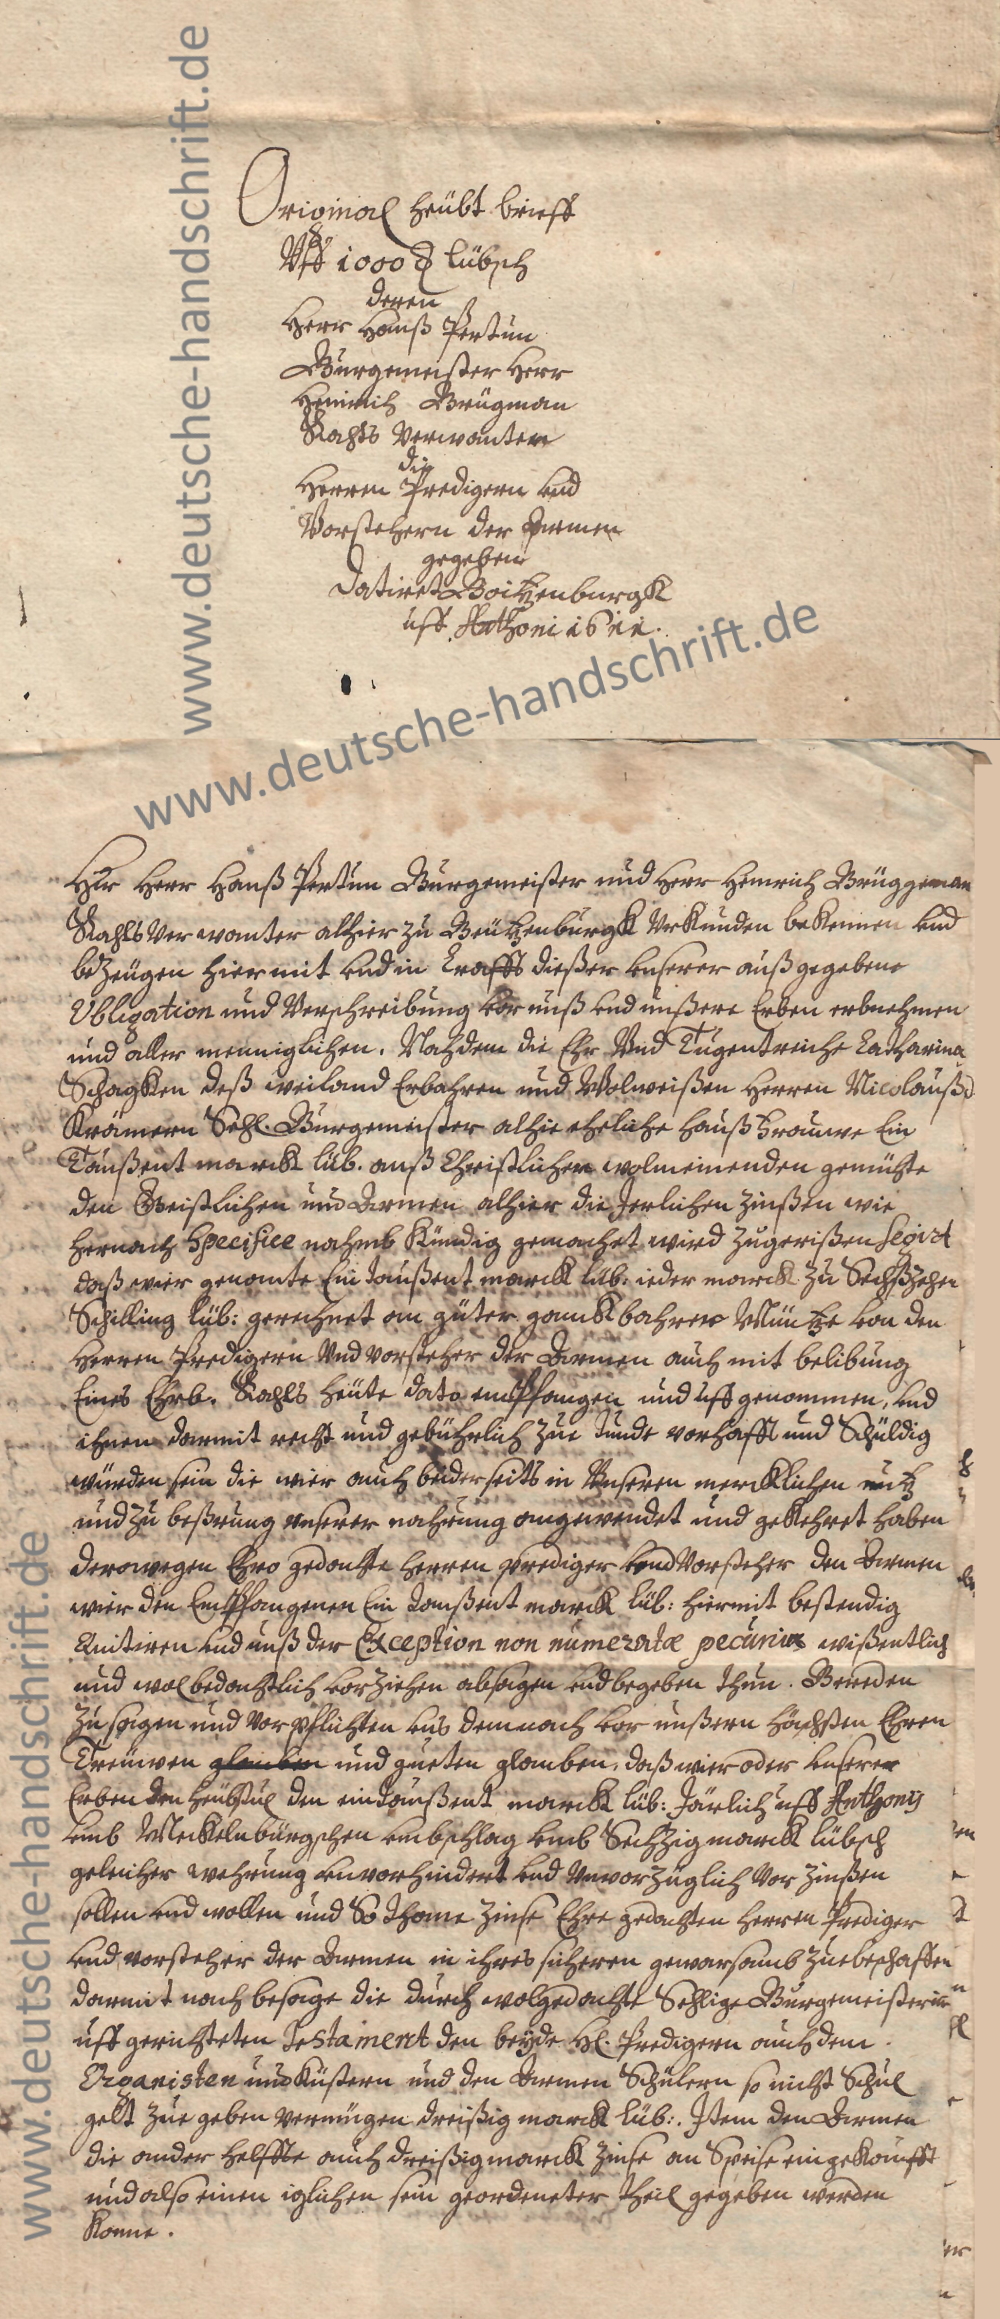 www.deutsche-handschrift.de
Original heübt brieff
Vff 1000 lübsch
deren
Herr Hanß Pertun
Burgemeister Herr
Heinrich Brügman
Rahts Verwanten
die
Herren Predigern vnd
Vorstehern der Armen
gegeben
Datiret Boitzenburgk
uff Anthoni 1611.
www.deutsche-handschrift.de
Wir Herr Hanß Pertun Burgemeister und Herr Heinrich Brüggeman
Rahts Verwanter alhier zu Beützenburgk Vrkunden bekennen vnd
bezeugen hiermit vnd in Crafft dießer vnserer auß gegebene
Obligation und Verschreibung vor unß vnd unßere Erben erbnehmen
und aller menniglichen. Nachdem die Ehr Vnd Tugentreiche Catharina
Schagken deß weiland Erbahren und Wolweißen Herren Nicolauß
Krämern Sehl. Burgemeister alhie eheliche Hauß Frauwe Ein
Taußent marck lüb. auß Christlichen wolmeinenden gemühte
den Geistlichen und Armen alhier die Jerlichen Zinßen wie
hernach Specifice nahmb kündig gemachet wird zugerißen legirt
daß wier genante Ein taußent marck lüb: ieder marck zu Sechszehen
Schilling lüb: gerechnet an güter ganckbahrer Müntze von den
Herren Predigern Vnd vorsteher der Armen auch mit belibung
Eines Ehrb. Rahts heüte dato entpfangen und uff genommen, vnd
ihnen darmit recht und gebührlich zue vorhafft und Schüldig
würden sein die wier auch beiderseits in Vnseren mercklichen nutz
und zu beßrung vnserer nahrung angewendet und gekehret haben
derowegen Ehro gedachte Herren prediger vnd Vorsteher den Armen
wier den Entpfangenen Ein taußent marck lüb: hiermit bestendig
Quitiren vnd unß der Exception non numeratæ pecuniæ wißentlich
und wolbedachtlich vorziehen absagen vnd begeben thun. Bereden
zu sagen und vorpflichten uns demnach vor unßern höchsten Ehren
Treuwen glauben und gueten glauben, daß wier oder vnserer
Erben den heübstul den eintaußent marck lüb: Järlich uff Anthonij
vmb Meckelnbürgschen vmbschlag vmb Sechzig marck lübsch
geleicher wehrung vnvorhindert vnd Vnvorzüglich Vor Zinßen
sollen vnd wollen und So thane Zinse Ehre gedachten Herren Prediger
vnd vorsteher der Armen in ihres sicheren gewarsamb zue beschaffen
darmit nach besage die durch wolgedachte Sehlige Burgemeisterinn
uff gerichteten Testament den beyde Hl. Predigern auch dem
Organisten und Küstern und den Armen Schülern so nicht Schul
gelt zue geben vermügen dreißig marck lüb:. Item den Armen
die ander helffte auch dreißig marck Zinse an Speise eingekaufft
und also einen iglichen sein geordneter theil gegeben werden
konne.
www.deutsche-handschrift.de